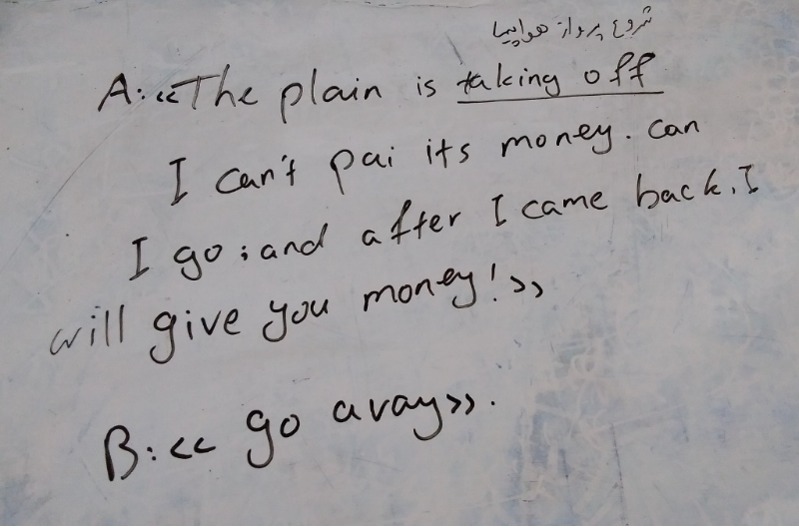 شروع پرواز هواپیما
A: «The plain is taking off
I can't pai its money. can
I go; and after I came back. I
will give you money!»
B: « go avay».